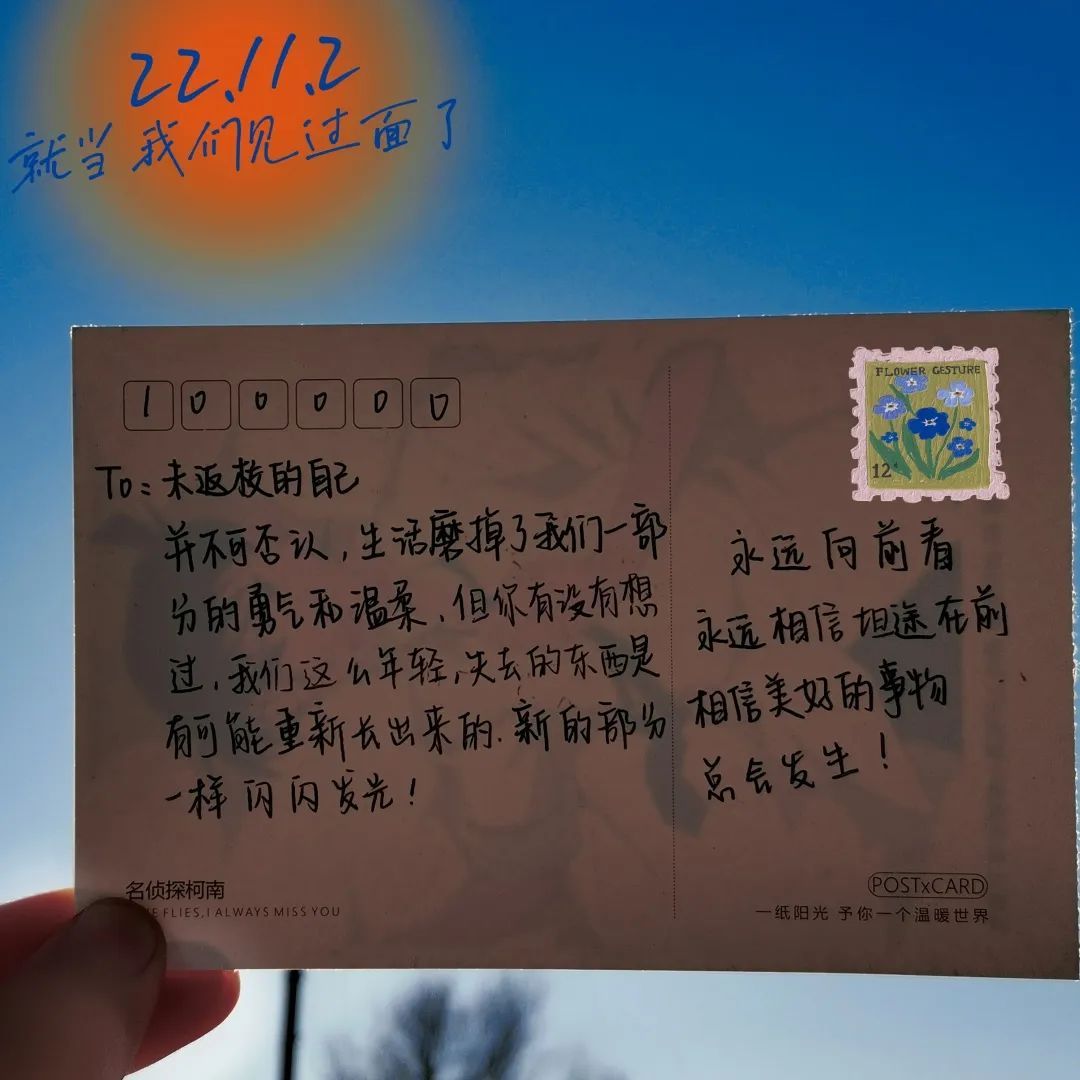 22.11.2
就当我们见过面了
100000
To：未返校的自己
并不可否认，生活磨掉了我们一部
分的勇气和温柔，但你有没有想
过，我们这么年轻，失去的东西是
有可能重新长出来的.新的部分
一样闪闪发光！
FLOWER GESTURE
12
永远向前看
永远相信坦途在前
相信美好的事物
总会发生！
名侦探柯南
FLIES,I ALWAYS MISS YOU
POSTxCARD
一纸阳光 予你一个温暖世界